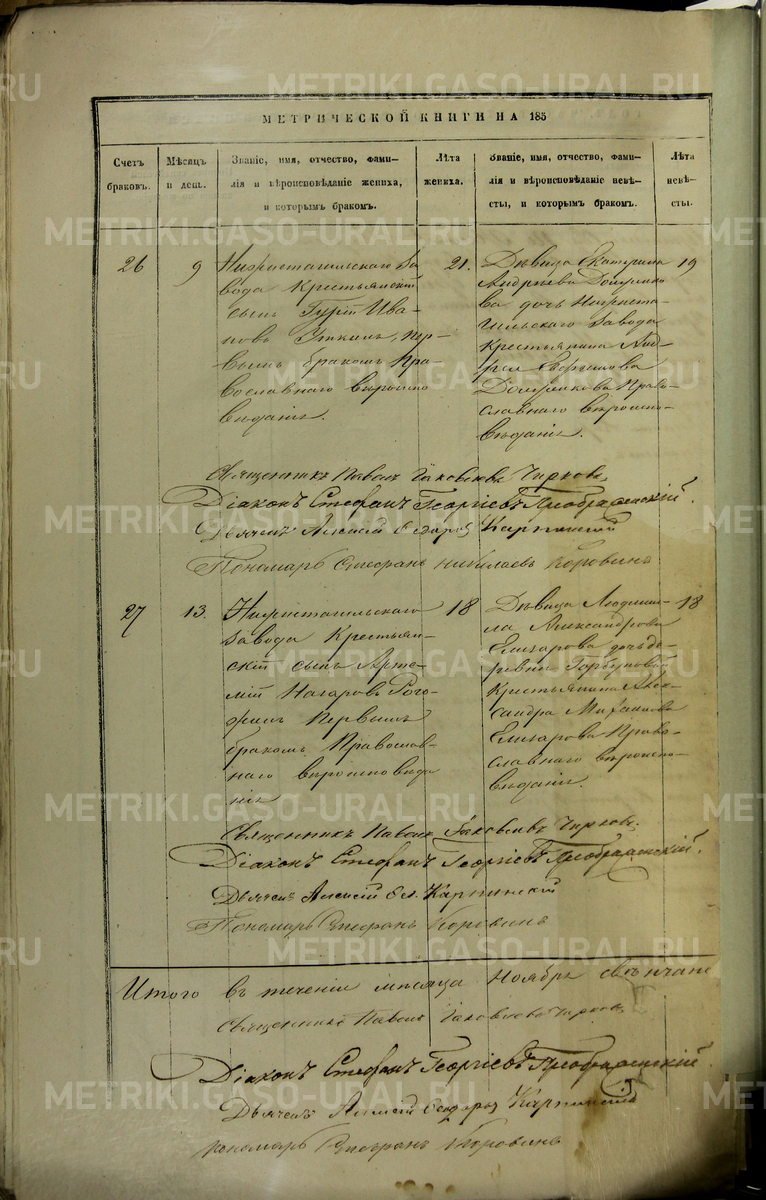 МЕТРИЧЕСКОЙ КНИГИ НА 185
Счетъ браковъ.
Мѣсяцъ и день.
Званіе, имя, отчество, фами-
лія и вѣроисповѣданіе жениха,
и которымъ бракомъ.
Лѣта жениха.
Званіе, имя, отчество, фами-
лія и вѣроисповѣданіе невѣ-
сты, и которымъ бракомъ.
Лѣта невѣ-
сты.
26
9
Нижнетагильскаго За-
вода Крестьянскій
сынъ Гурій Ива-
новъ Уткинъ, пер-
вымъ бракомъ Пра-
вославнаго вѣроиспо
вѣданія.
21.
Дѣвица Екатерина
Андреева
ва дочь Нижнета-
гильскаго Завода
Крестьянина Анд-
рея
Право-
славнаго вѣроиспо-
вѣданія.
19
Священникъ Павелъ Іаковлевъ Чирковъ
Діаконъ Стефанъ Георгіевъ Преображенскій.
Дьячекъ Алексій Карпинскій
Пономарь Стефанъ Николаевъ Коровинъ
27
13.
Нижнетагильскаго
Завода Крестьян-
скій сынъ Арте-
мій Назаровъ Рого-
жинъ Первымъ
бракомъ Православ-
наго вѣроисповѣда
нія
18
Дѣвица Людмии-
ла Александрова
Елизарова дочь де-
ревни Горбуновой
Крестьянина Алек-
сандра Михайлова
Елизарова Право-
славнаго вѣроиспо-
вѣданія.
18
Священникъ Павелъ Іаковлевъ Чирковъ.
Діаконъ Стефанъ Георгіевъ Преображенскій.
Дьячекъ Алексій Карпинскій
Пономарь Стефанъ Коровинъ
Итого въ теченіи мѣсяца Ноября свѣнчано
Священникъ Павелъ Іаковлевъ Чирковъ
Діаконъ Стефанъ Георгіевъ Преображенскій
Дьячекъ Алексій Карпинскій
Пономарь Стефанъ Коровинъ
METRIKI.GASO-URAL.RU